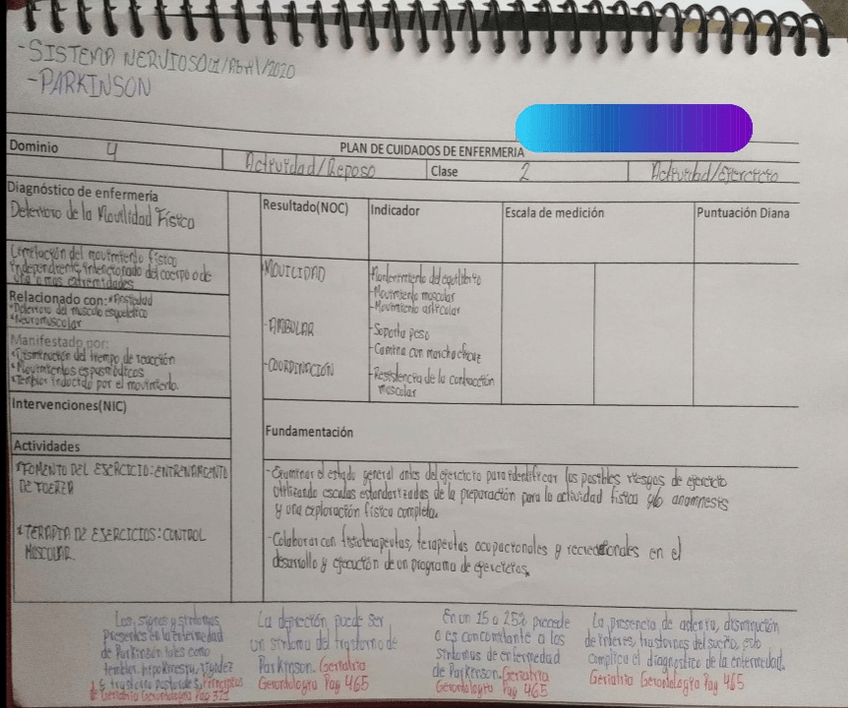 -SISTEMA NERVIOSO 01/Abril/2020
-PARKINSON
PLAN DE CUIDADOS DE ENFERMERIA
Dominio 4 Actividad/Reposo Clase 2 Actividad/Ejercicio
Diagnóstico de enfermería
Deterioro de la Movilidad Físico
Limitación del movimiento físico
independiente, intencionado del cuerpo o de
una o mas extremidades
Relacionado con: *Ansiedad
*Deterioro del musculo esqueletico
*Neuromuscular
Manifestado por:
*Disminución del tiempo de reacción
*Movimientos espasmódicos
*Temblor inducido por el movimiento.
Intervenciones(NIC)
Actividades
*FOMENTO DEL EJERCICIO: ENTRENAMIENTO
DE FUERZA
*TERAPIA DE EJERCICIOS: CONTROL
MUSCULAR.
Resultado(NOC) Indicador Escala de medición Puntuación Diana
MOVILIDAD
-Mantenimiento del equilibrio
-Movimiento muscular
-Movimiento articular
-AMBULAR
-Soporta peso
-Camina con marcha eficaz
-COORDINACIÓN
-Resistencia de la contracción
muscular
Fundamentación
-Examinar el estado general antes del ejercicio para identificar los posibles riesgos de ejercicio
utilizando escalas estandarizadas de la preparación para la actividad física y/o anamnesis
y una exploración física completa.
-Colaborar con fisioterapeutas, terapeutas ocupacionales y recreacionales en el
desarrollo y ejecución de un programa de ejercicios,
Los signos y síntomas
presentes en la enfermedad
de Parkinson tales como
temblor, rigidez
y trastorno posturales,
Geriatria Gerontologya Pag
La depreción puede ser
un síntoma del trastorno de
Parkinson. Geriatria
Gerontologya Pag 465
En un 15 a 25% precede
o es concomitante a los
síntomas de enfermedad
de Parkinson. Geriatria
Gerontologya Pag 465
La presencia de disminución
de interes, trastornos del sueño, esto
complica el diagnostico de la enfermedad.
Geriatria Gerontologya Pag 465